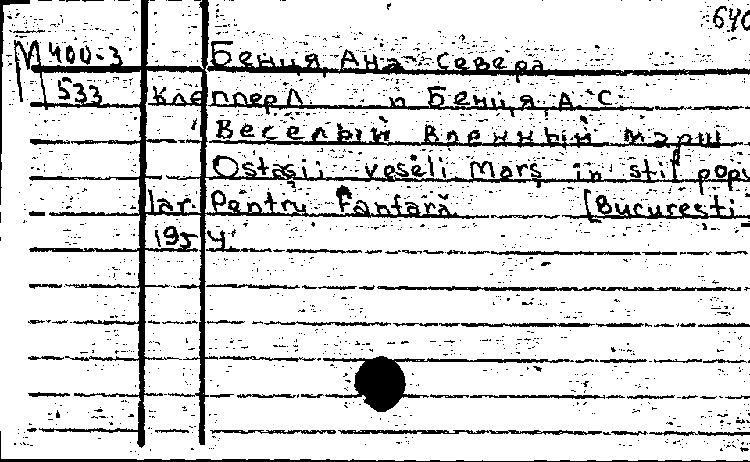 640
М 400-3 Бенция, Ана Севера
533 Клеппер Л. и Бенция, А. С.
"Веселый военный марш
Ostaşii veseli Marş in stil popu
lar. Pentru Fanfară. [Bucureşti]
1954.